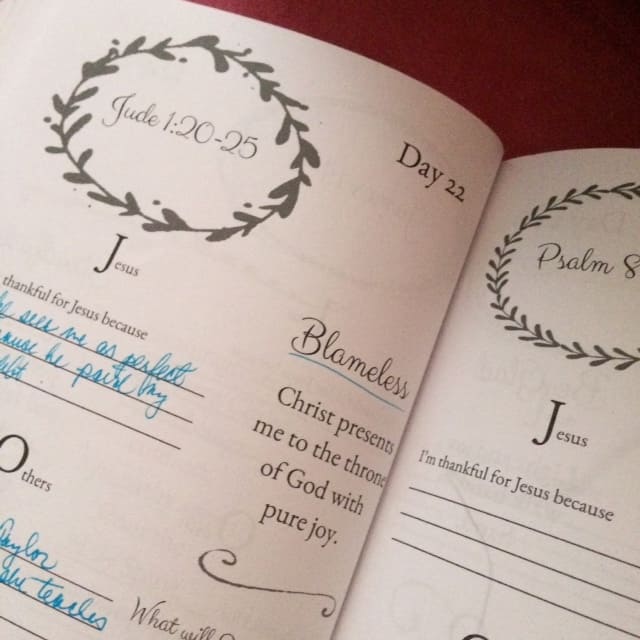 Jude 1:20-25
Day 22
Jesus
thankful for Jesus because
sees me as perfect
he paid my
debt.
Blameless
Christ presents
me to the throne
of God with
pure joy.
Others
Taylor
teacher
What will
Psalm 8
Jesus
I'm thankful for Jesus because